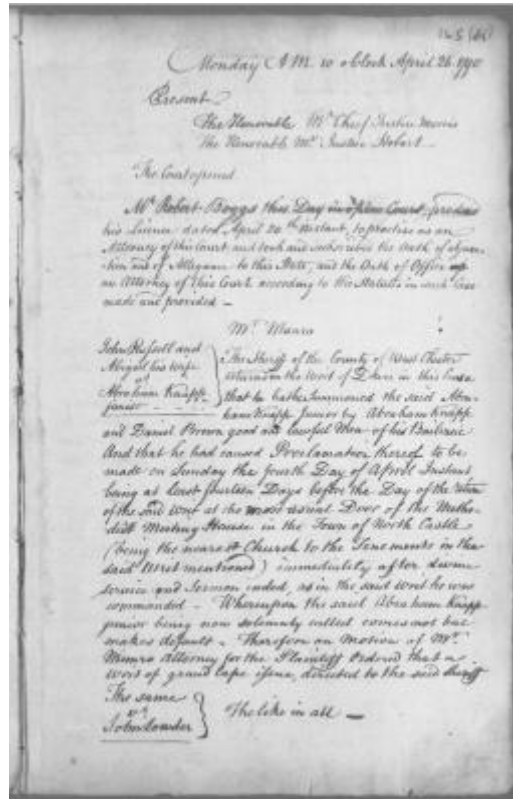 Monday A M. 10 oClock April 26. 1790
Present
The Honorable Mr. Chief Justice Morris
The Honorable Mr. Justice Hobart
The Court opened
Mr. Robert Boggs this Day in open Court produced
his Licence dated April 24th Instant, to practise as an
Attorney of this court and took and subscribed the Oath of abjura-
tion and of Allegiance to this State, and the Oath of Office as
an Attorney of this Court according to the Statutes in such Case
made and provided —
Mr. Munro
John and
Abigail his Wife
vs
Abraham Knapp
junior
The Sheriff of the County of West Chester
returns on the Writ of Dower in this Cause
that he hath summoned the said Abra-
ham Knapp Junior by Abraham Knapp
and Daniel Brown good and lawful Men of his Bailiwic
And that he had caused Proclamation thereof to be
made on Sunday the fourth Day of April Instant
being at least fourteen Days before the Day of the return
of the said Writ at the most usual Door of the Metho-
dist Meeting House in the Town of North Castle
(being the nearest Church to the Tenements in the
said Writ mentioned) immediately after divine
service and Sermon ended, as in the said writ he was
commanded — Whereupon the said Abraham Knapp
junior being now solemnly called comes not but
makes default — Therefore on Motion of Mr.
Munro Attorney for the Plaintiff Ordered that a
Writ of grand Cape issue, directed to the said Sheriff
The same
vs
John Lowder
The like in all —